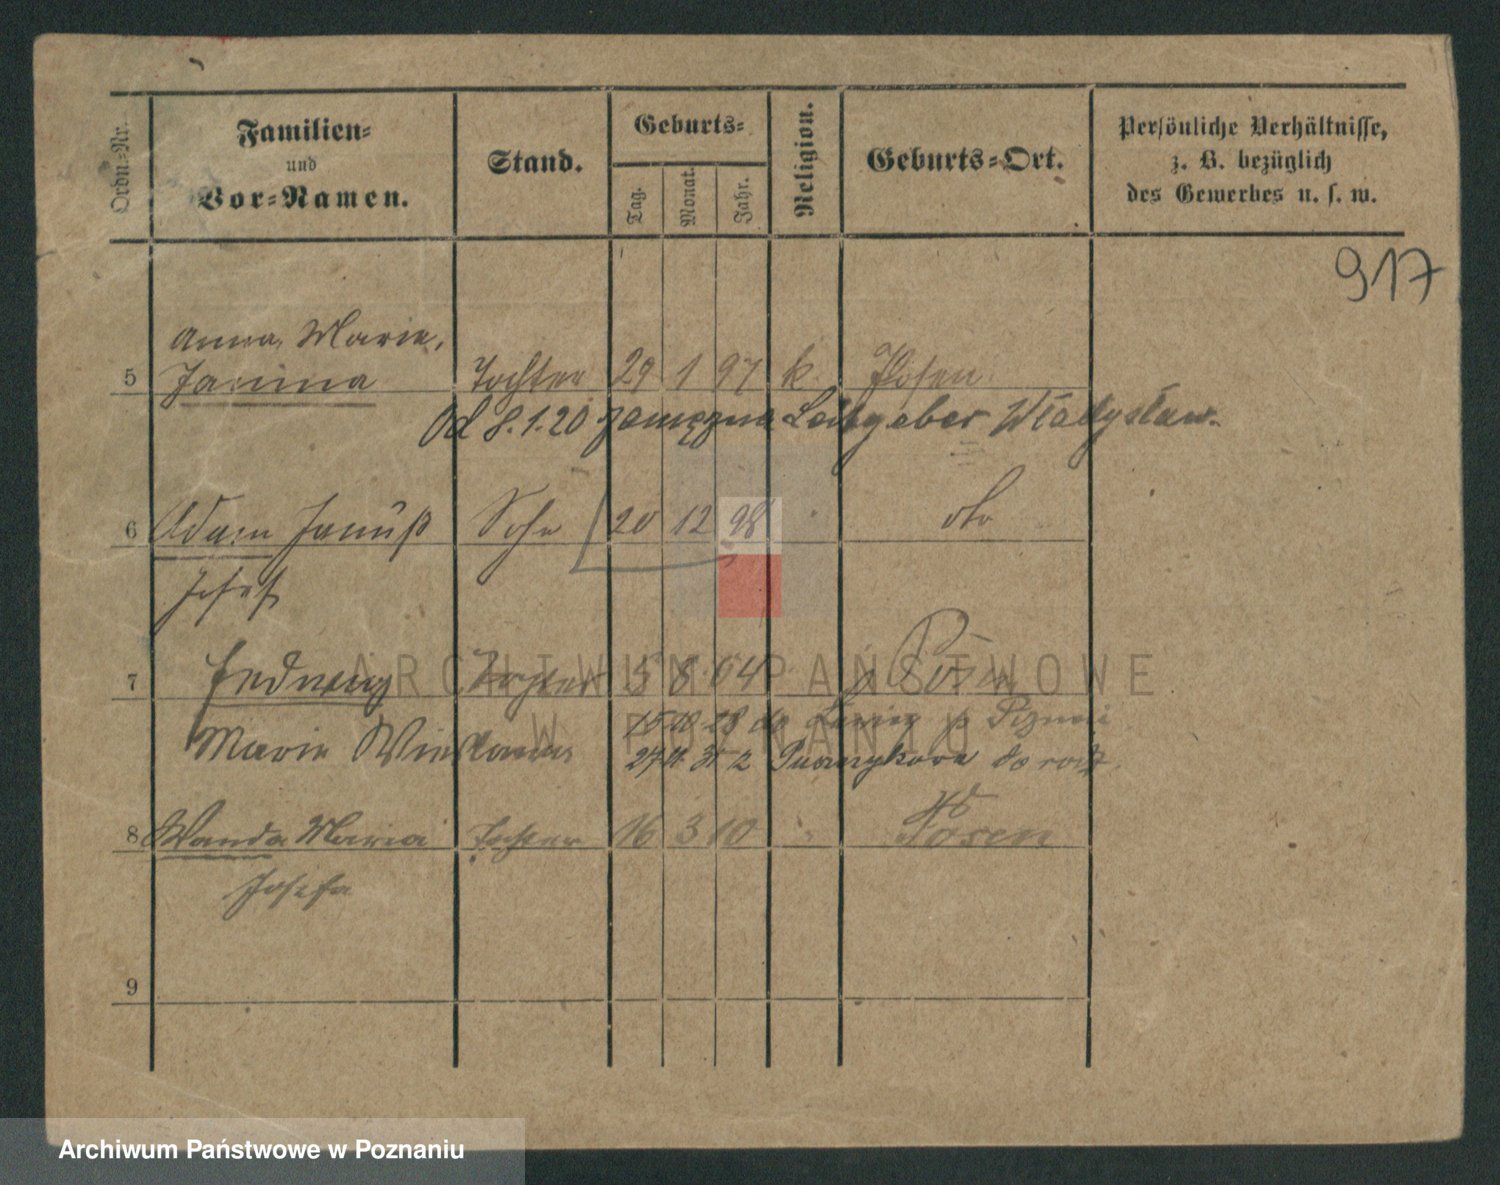 Ordn.-Nr.
Familien-
und
Vor-Namen.
Stand.
Geburts-
Tag.
Monat.
Jahr.
Religion.
Geburts-Ort.
Persönliche Verhältnisse,
z. B. bezüglich
des Gewerbes u. s. w.
917
Anna, Marie,
5 Janina Tochter 29 1 97 k. Posen
Od 8.1.20 zamężna Leitgeber Władysław.
6 Adam Januß Sohn 20 12 98 dto
Josef
7 Hedwig Tochter 5 8 04 Posen
Marie
27 do rodz.
8 Wanda Maria Tochter 16 3 10 Posen
Josefa
9
ARCHIWUM PAŃSTWOWE
W POZNANIU
Archiwum Państwowe w Poznaniu